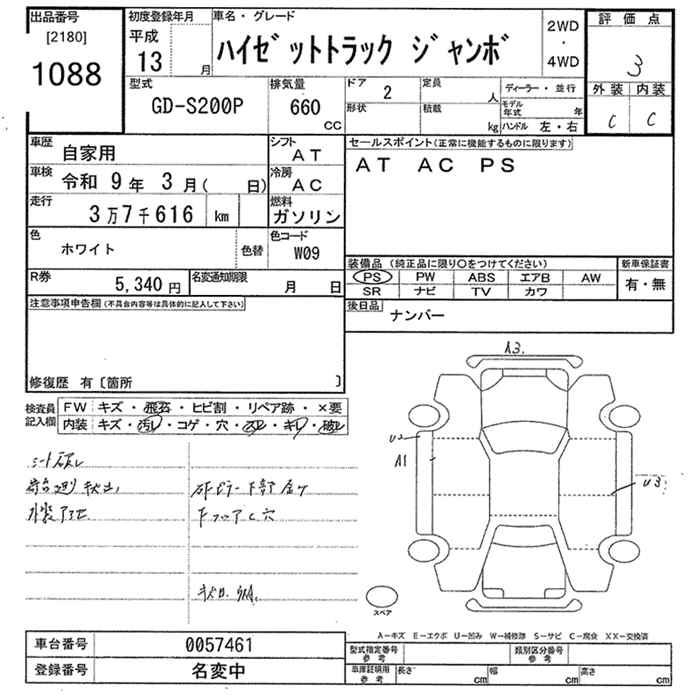 出品番号 初度登録年月 車名・グレード 2WD 評価点
[2180] 平成 ハイゼットトラック ジャンボ ・ 3
1088 13 月 4WD 外装 内装
型式 排気量 ドア 2 定員 人 ディーラー・並行 C C
GD-S200P 660 CC 形状 積載 kg モデル年式 年
ハンドル 左・右
車歴 自家用 シフト AT セールスポイント(正常に機能するものに限ります)
車検 令和 9年 3月( 日) 冷房 AC AT AC PS
走行 3万7千616 km 燃料 ガソリン
色 ホワイト 色替 色コード W09 装備品(純正品に限り○をつけてください) 新車保証書
R券 5,340円 名変通知期限 月 日 PS PW ABS エアB AW 有・無
SR ナビ TV カワ
注意事項申告欄(不具合内容等は具体的に記入して下さい) 後日品 ナンバー
修復歴 有〔箇所 〕
検査員記入欄 FW キズ・飛石・ヒビ割・リペア跡・×要
内装 キズ・汚レ・コゲ・穴・スレ・キレ・破レ
A3
U2
A1
U3
下フロアC穴
スペア
A−キズ E−エクボ U−凹み W−補修跡 S−サビ C−腐食 XX−交換済
車台番号 0057461 型式指定番号 参考 類別区分番号 参考
登録番号 名変中 車庫証明用 参考 長さ cm 幅 cm 高さ cm